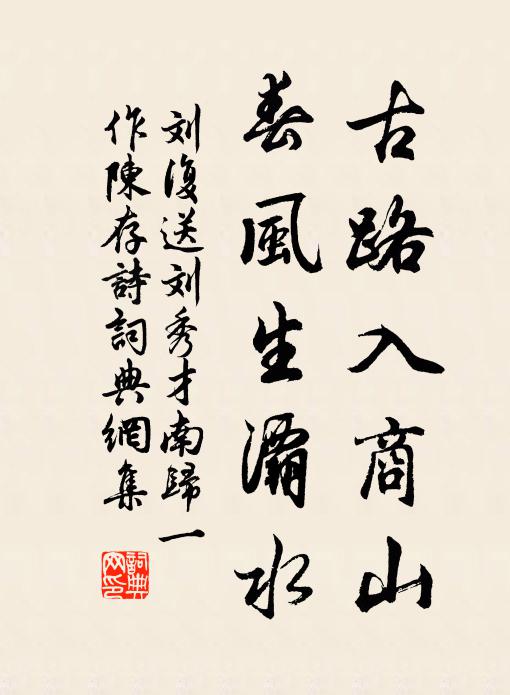 古路入商山
春風生灞水
刘復送刘秀才南歸一
作陳存詩詞典網集
詞典网印